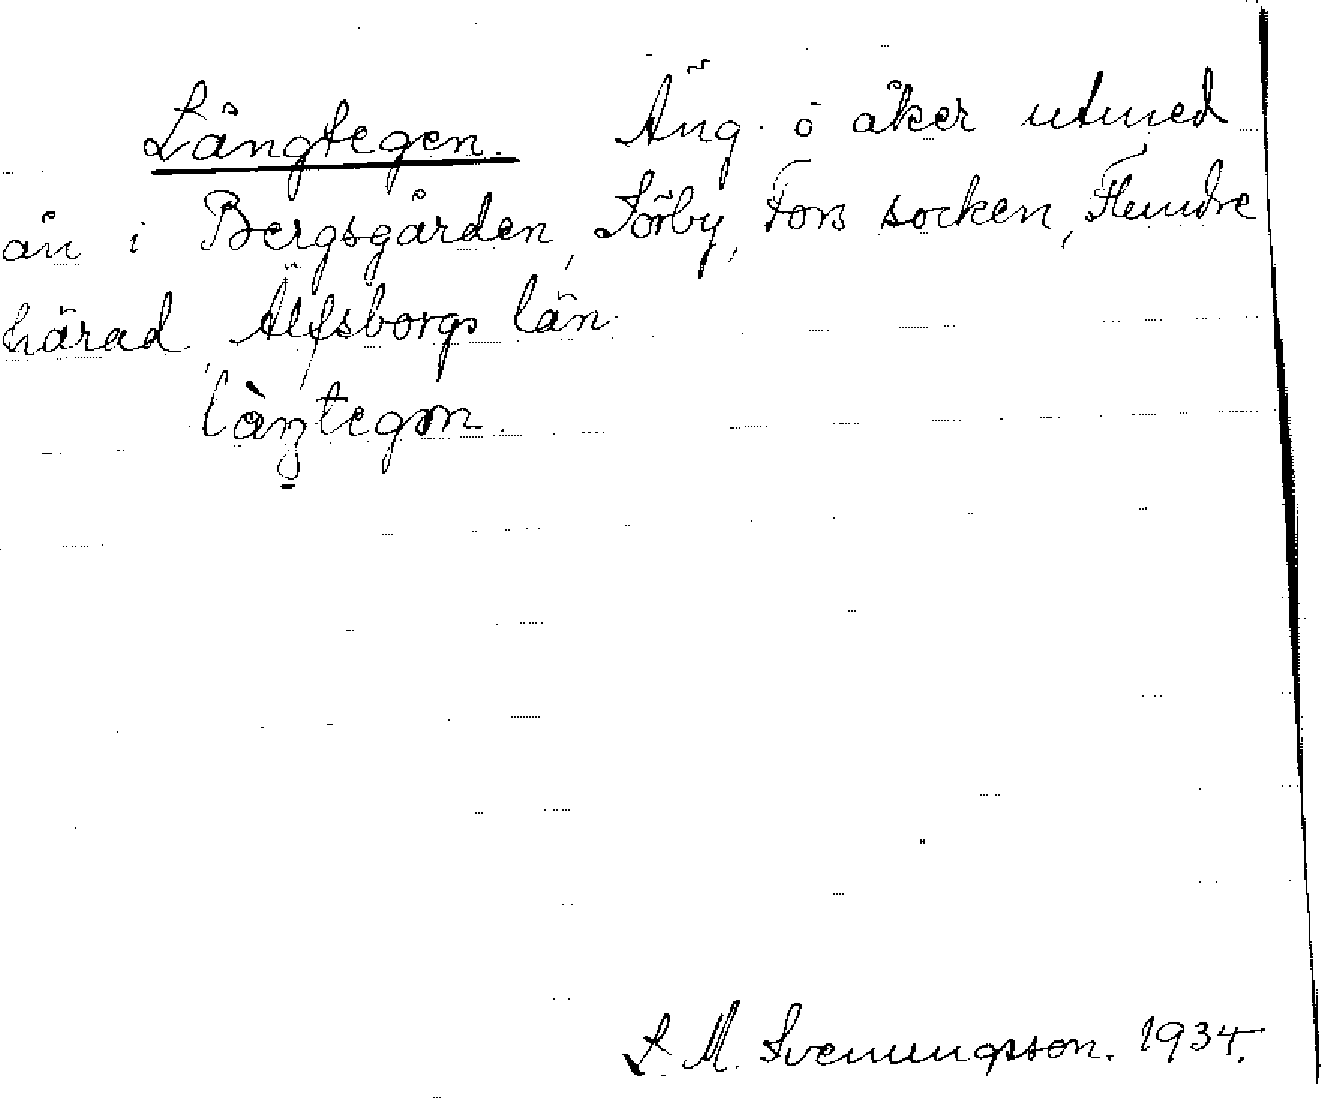 Långtegen. Äng o åker utmed
ån i Bergsgården, Sörby, Fors socken, Flundre
härad, Älfsborgs län.
làŋtegən.
S. M. Svenungsson. 1934.